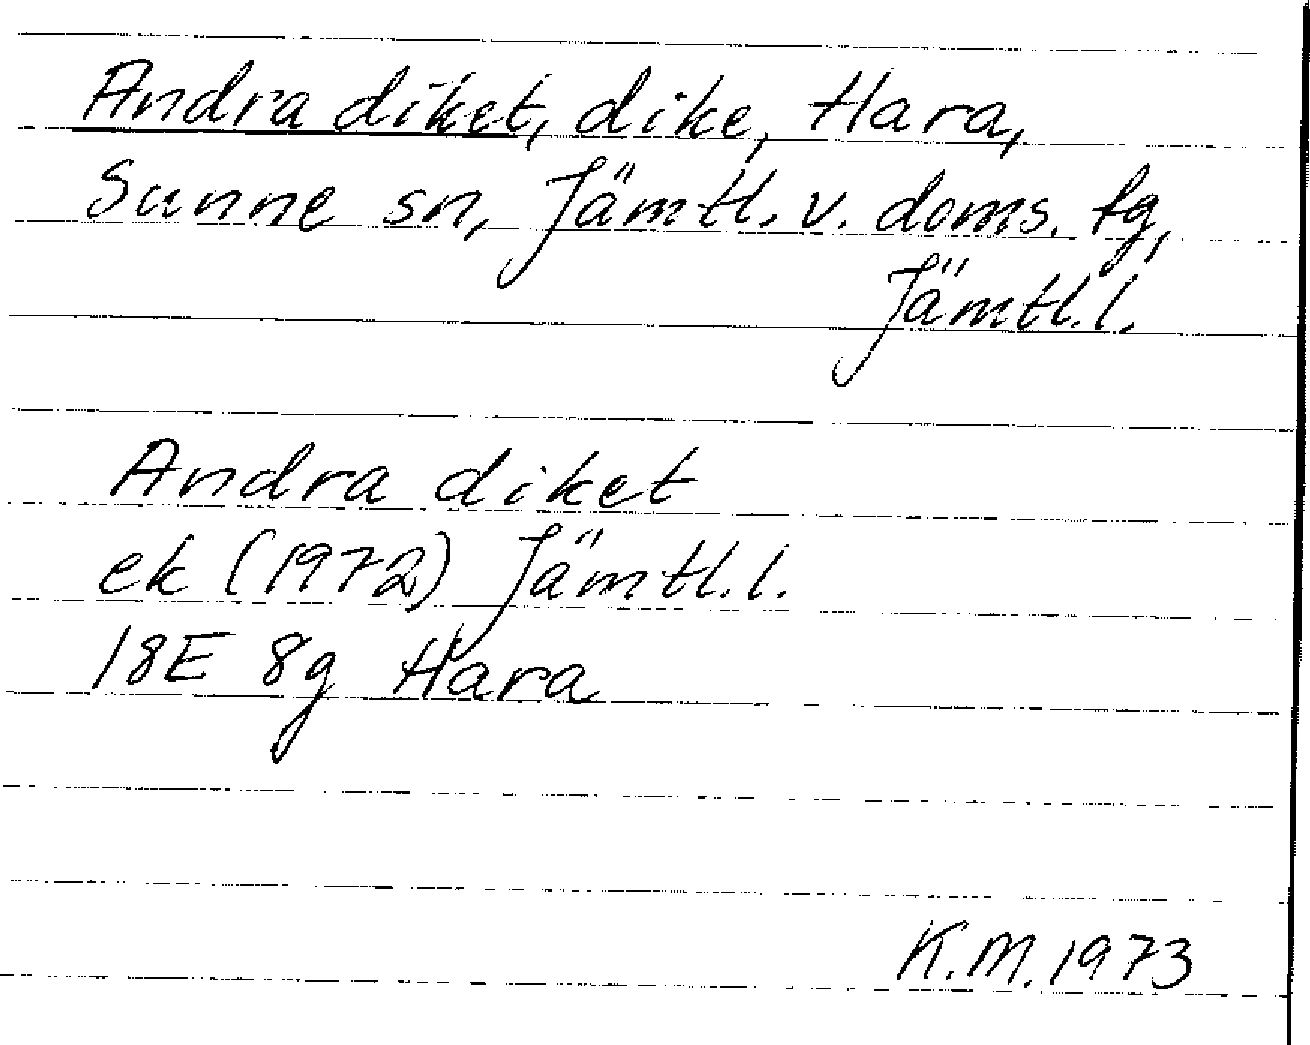 Andra diket, dike, Hara,
Sunne sn, Jämtl. v. doms. tg,
Jämtl.l.
Andra diket
ek (1972) Jämtl.l.
18E 8g Hara
K.M. 1973